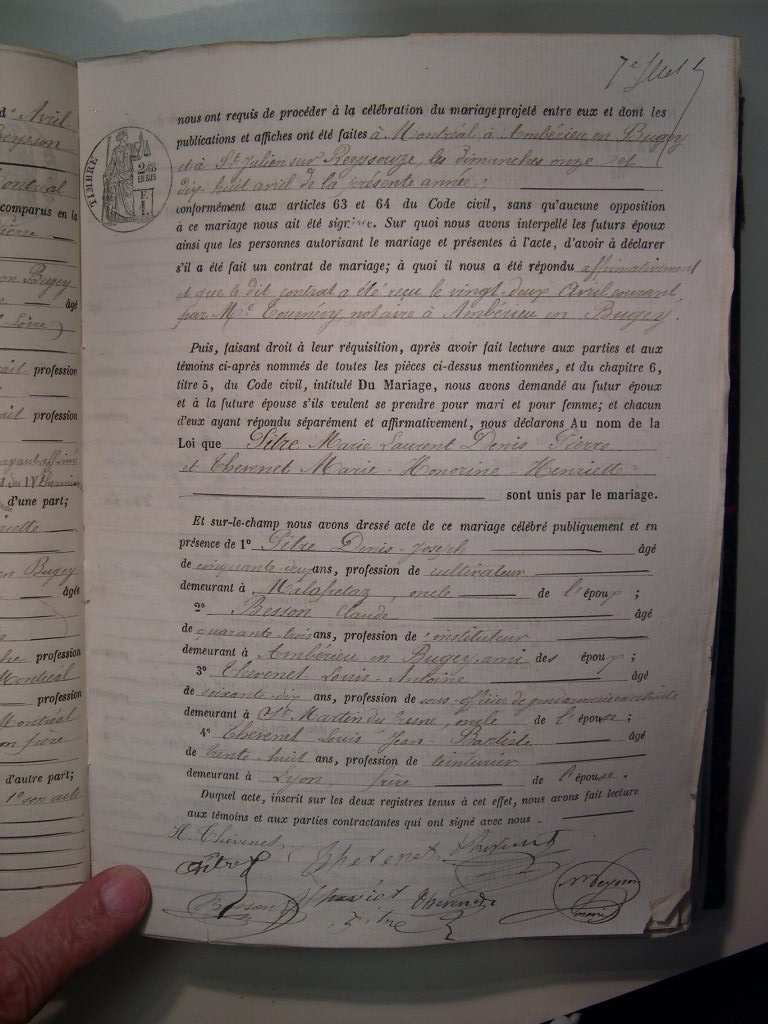 7e
d' Avril
Beysson
TIMBRE
Montréal
comparus en la
nous ont requis de procéder à la célébration du mariage projeté entre eux et dont les
publications et affiches ont été faites à Montréal, à Ambérieu en Bugey
et à St Julien sur Reyssouze, les dimanches onze et
dix huit avril de la présente année;
conformément aux articles 63 et 64 du Code civil, sans qu'aucune opposition
à ce mariage nous ait été signifiée. Sur quoi nous avons interpellé les futurs époux
ainsi que les personnes autorisant le mariage et présentes à l'acte, d'avoir à déclarer
s'il a été fait un contrat de mariage; à quoi il nous a été répondu affirmativement
et que le dit contrat a été reçu le vingt-deux Avril courant,
par Me notaire à Ambérieu en Bugey.
Puis, faisant droit à leur réquisition, après avoir fait lecture aux parties et aux
témoins ci-après nommés de toutes les pièces ci-dessus mentionnées, et du chapitre 6,
titre 5, du Code civil, intitulé Du Mariage, nous avons demandé au futur époux
et à la future épouse s'ils veulent se prendre pour mari et pour femme; et chacun
d'eux ayant répondu séparément et affirmativement, nous déclarons Au nom de la
Loi que Pitre Marie Laurent Denis Pierre
et Thevenet Marie-Honorine-Henriette
sont unis par le mariage.
Et sur-le-champ nous avons dressé acte de ce mariage célébré publiquement et en
présence de 1° Pitre Denis-Joseph âgé
de cinquante ans, profession de cultivateur
demeurant à oncle de l'époux;
2° Besson Claude âgé
de quarante trois ans, profession de instituteur
demeurant à Ambérieu en Bugey, ami des époux;
3° Thevenet Louis-Antoine âgé
de soixante dix ans, profession de sous-officier de gendarmerie en retraite
demeurant à St Martin du Fresne, oncle de l'épouse;
4° Thevenet Louis Jean-Baptiste âgé
de trente huit ans, profession de teinturier
demeurant à Lyon frère de l'épouse.
Duquel acte, inscrit sur les deux registres tenus à cet effet, nous avons fait lecture
aux témoins et aux parties contractantes qui ont signé avec nous.
H. Thévenet
Pitre Thevenet Thevenet
Besson Thevenet
Pitre
Bugey
âgé
profession
profession
d'une part;
Bugey
âgée
profession
Montréal
profession
Montréal
d'autre part;